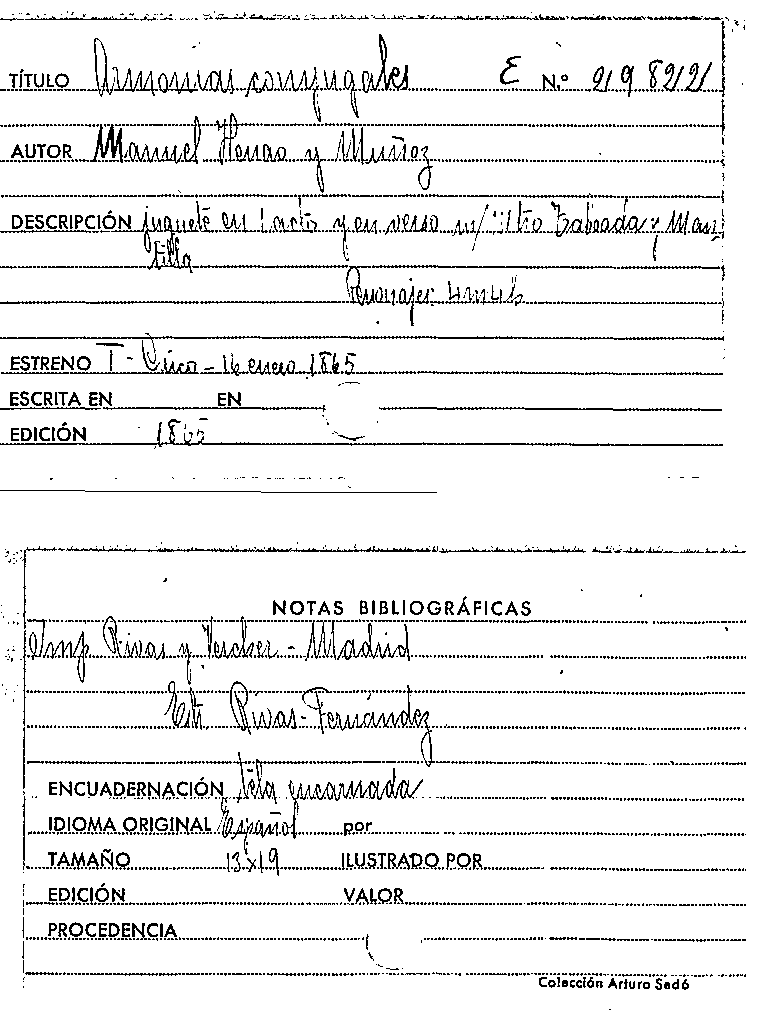 TÍTULO Armonias conjugales E N.º
AUTOR Manuel Henao y Muñoz
DESCRIPCIÓN juguete en 1 acto y en verso Taboada y Man
tilla
Personajes 4m4h
ESTRENO T - Circo - 16 enero 1865
ESCRITA EN EN
EDICIÓN 1865
NOTAS BIBLIOGRÁFICAS
Imp Rivas y - Madrid
Edt. Rivas-Fernández
ENCUADERNACIÓN tela encarnada
IDIOMA ORIGINAL Español por
TAMAÑO 13x19 ILUSTRADO POR
EDICIÓN VALOR
PROCEDENCIA
Colección Arturo Sedó